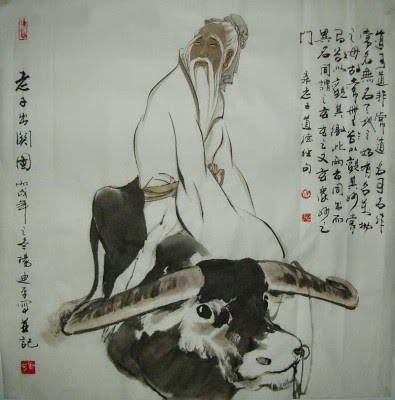 道可道非常道名可名非
常名無名天地之始有名萬物
之母故常無欲以觀其妙常
有欲以觀其徼此兩者同出而
異名同謂之玄玄之又玄眾妙之
門 老子道德經句
老子出關圖 丙戌年之冬 楊迪 寫並記